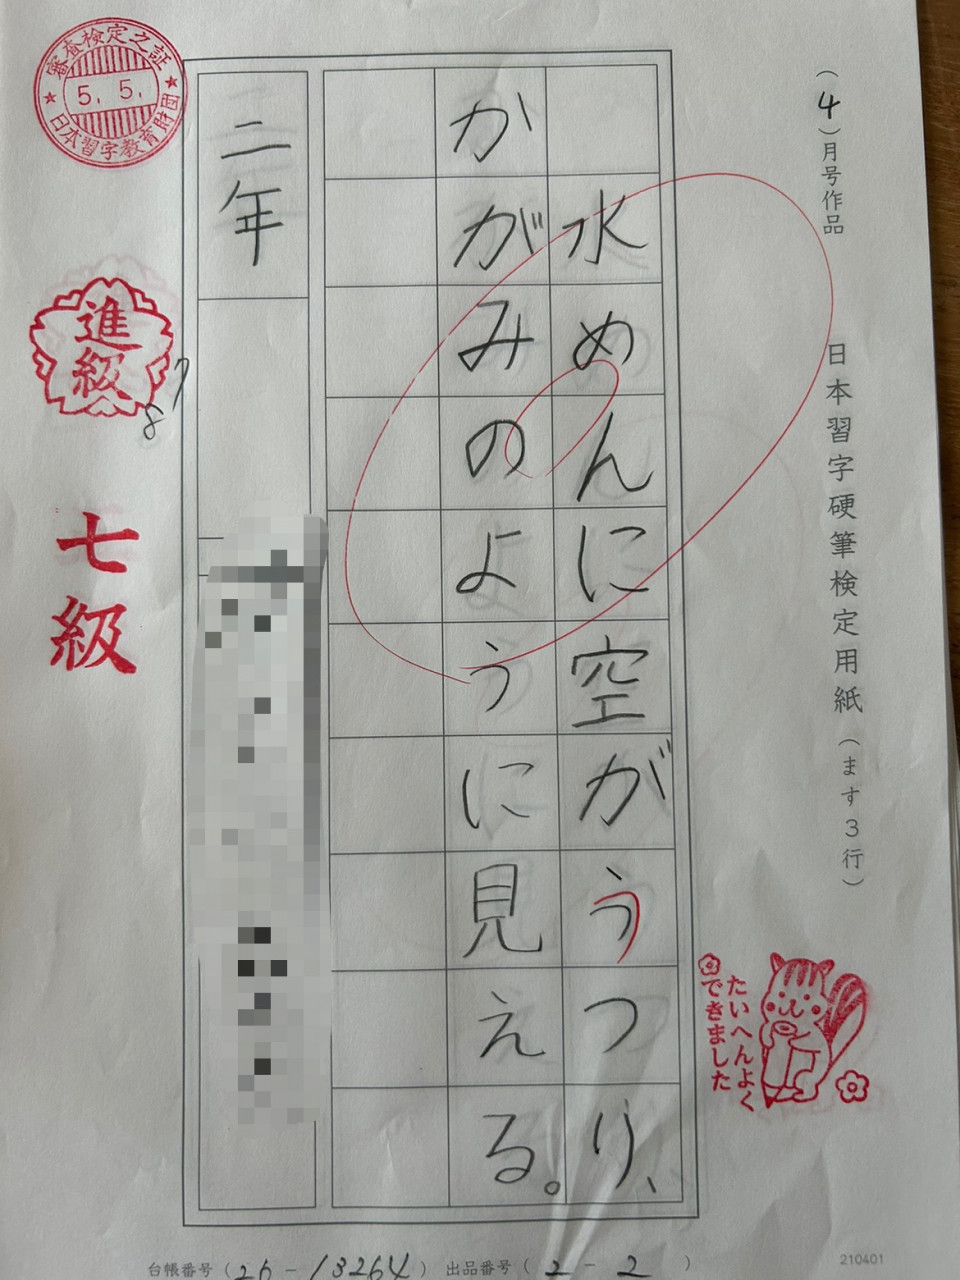 (4)月号作品
日本習字硬筆検定用紙(ます3行)
水めんに空がうつり、
かがみのように見える。
二年
審査検定之証
5.5.
日本習字教育財団
進級
87
七級
たいへんよく
できました
台帳番号(26-13264) 出品番号(2-2)
210401